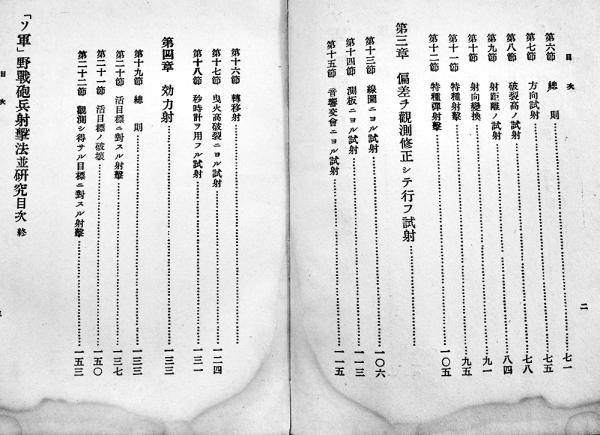 目次
二
第六節 總則………七一
第七節 方向試射………七五
第八節 破裂高ノ試射………七八
第九節 射距離ノ試射………八四
第十節 射向變換………九一
第十一節 特種射擊………九五
第十二節 特種彈射擊………一〇五
第三章 偏差ヲ觀測修正シテ行フ試射………
第十三節 線圖ニヨル試射………一〇六
第十四節 測板ニヨル試射………一一三
第十五節 音響交會ニヨル試射………一一五
第十六節 轉移射………
第十七節 曳火高破裂ニヨル試射………一二四
第十八節 秒時計ヲ用フル試射………一三一
第四章 効力射………一三三
第十九節 總則………一三三
第二十節 活目標ニ對スル射擊………一三七
第二十一節 活目標ノ破壞………一五〇
第二十二節 觀測シ得サル目標ニ對スル射擊………一五三
「ソ軍」野戰砲兵射擊法並研究目次 終
目次